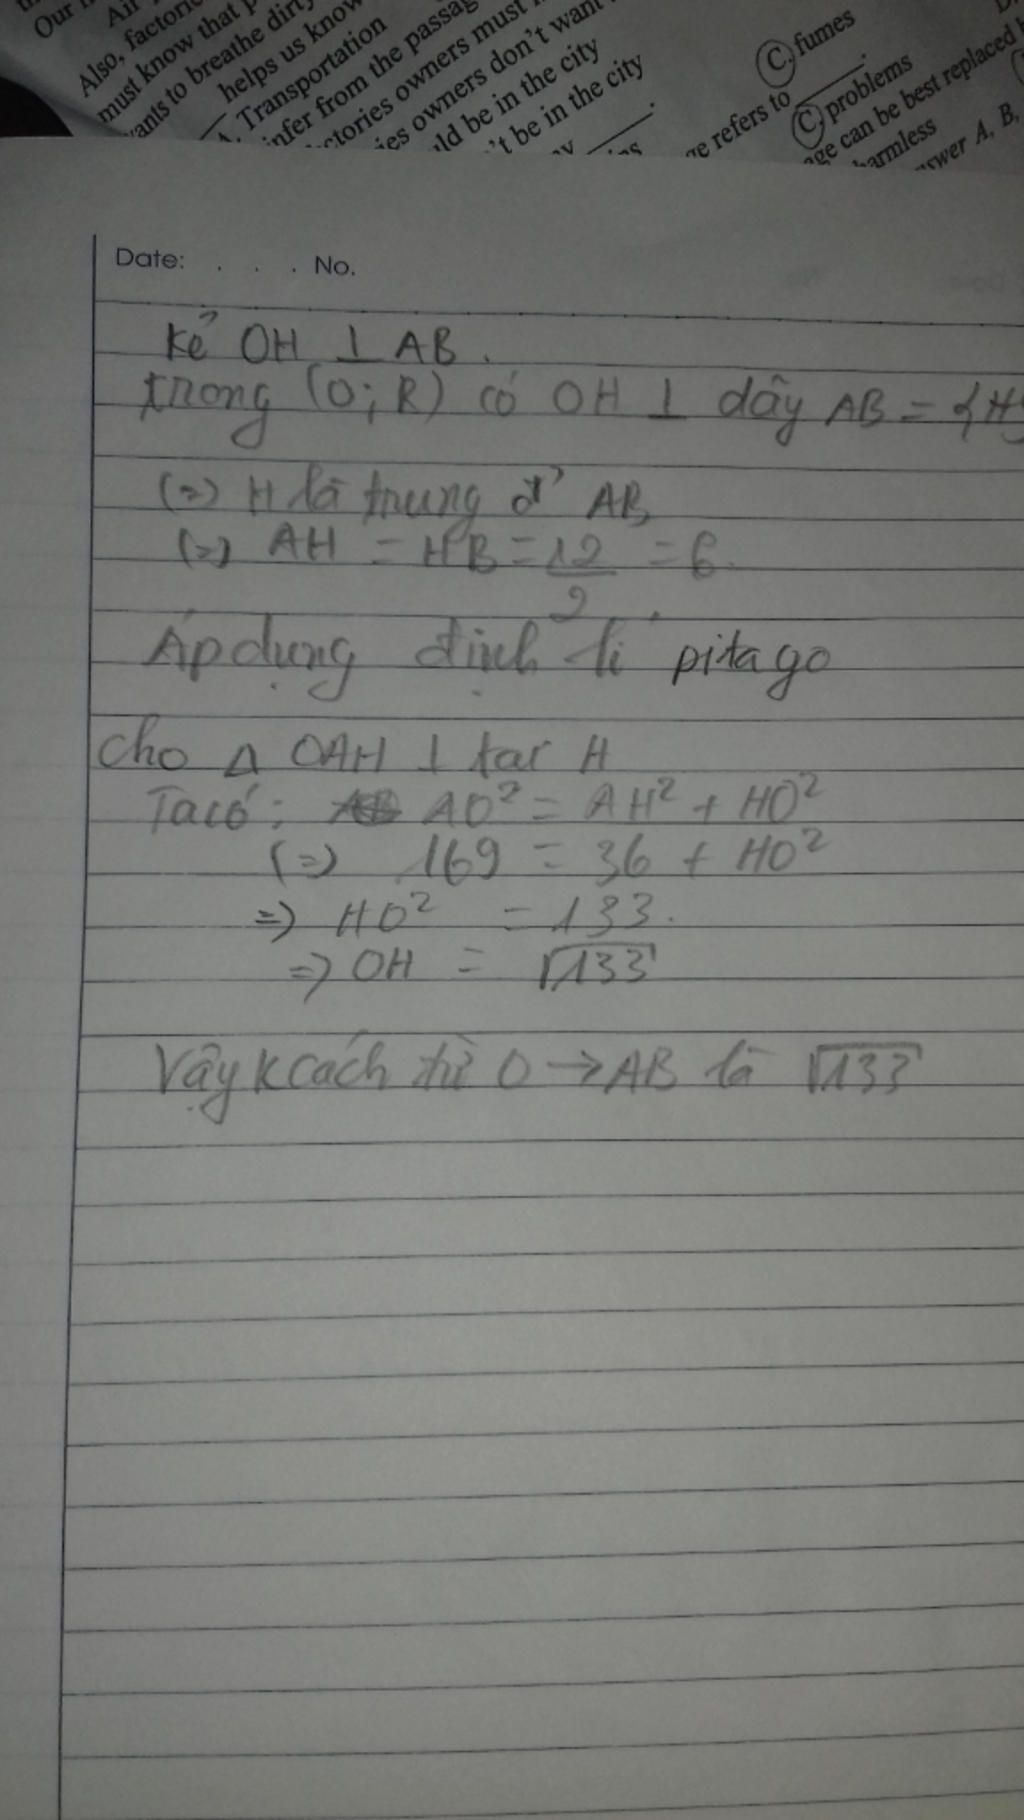 Our
Air
Also, factorie
must know that p
ants to breathe dirty
helps us know
A. Transportation
infer from the passag
ctories owners must
ies owners don't want
ld be in the city
't be in the city
ge refers to
C. fumes
C problems
ge can be best replaced b
harmless
swer A, B,
Date: . . . No.
Kẻ OH ⊥ AB.
trong (O; R) có OH ⊥ dây AB = {H}
(=) H là trung đ' AB
(=) AH = HB = 12/2 = 6.
Áp dụng định lí pitago
Cho Δ OAH ⊥ tại H
Ta có: AO² = AH² + HO²
(=) 169 = 36 + HO²
=) HO² = 133.
=) OH = √133
Vậy K cách từ O → AB là √133